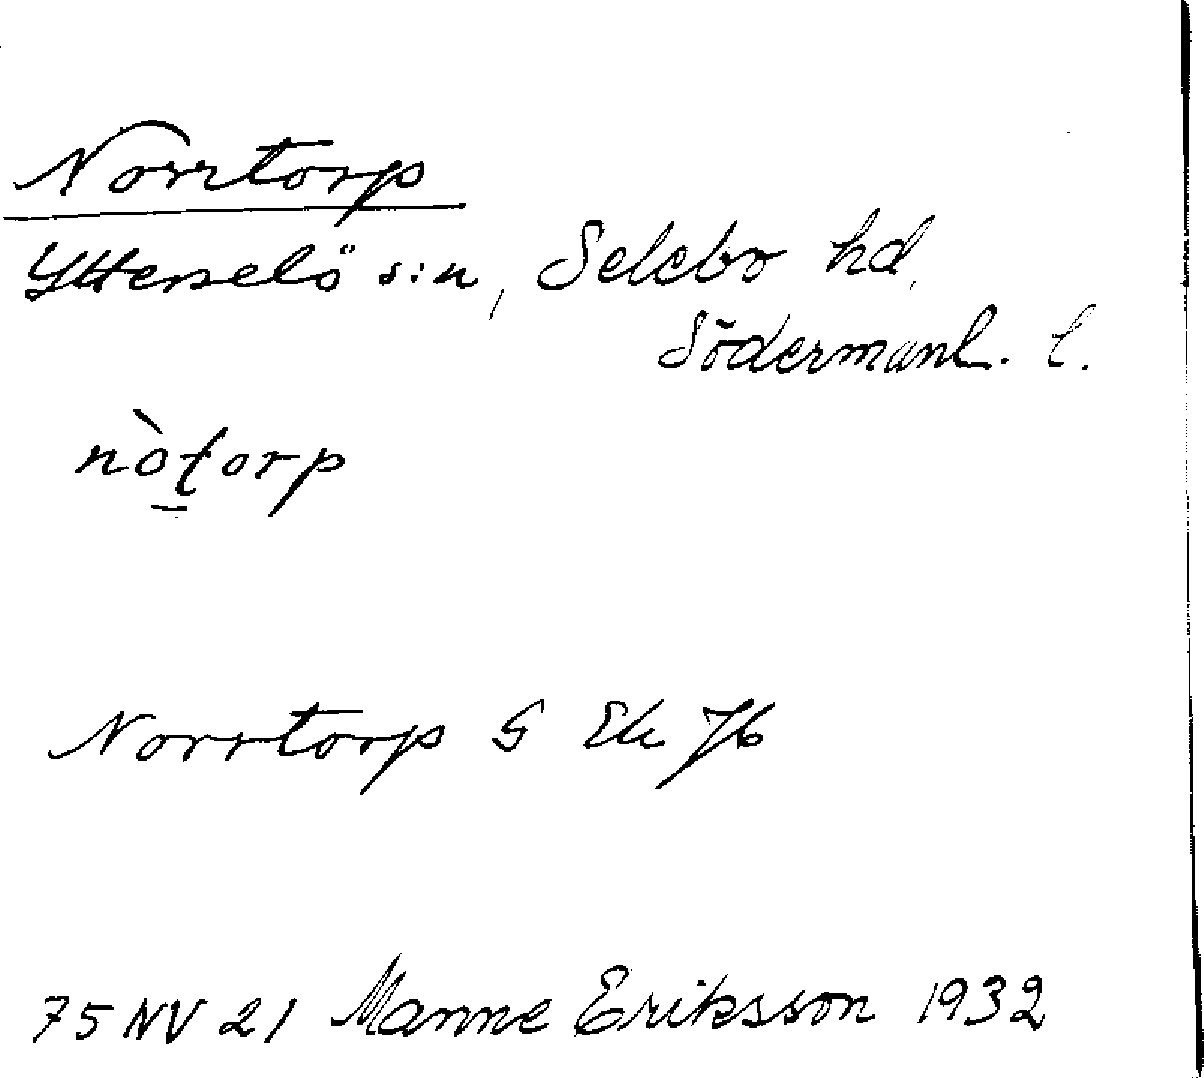 Norrtorp
Ytterselö s:n, Selebo hd,
Södermanl. l.
nòt̲orp
Norrtorp G Ek 76
75 NV 21 Manne Eriksson 1932